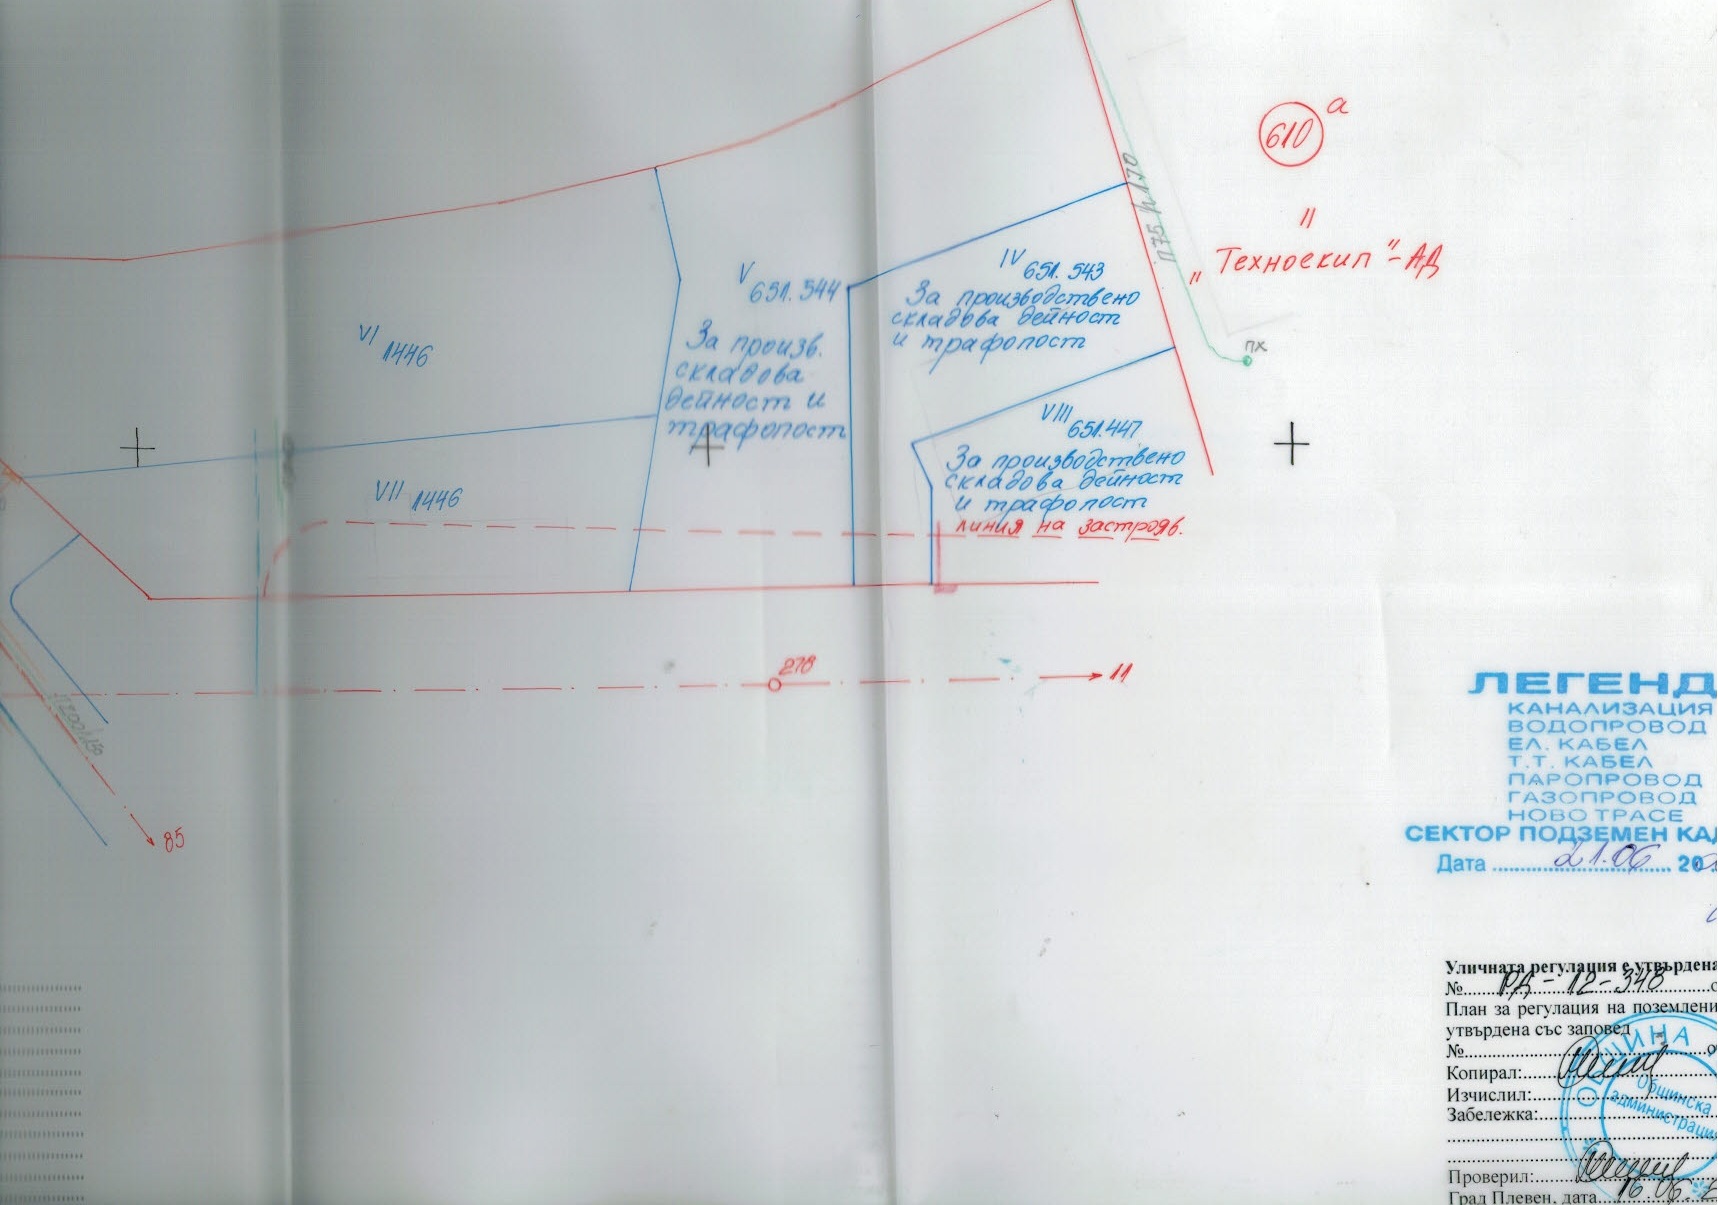 610 а
"
„Техноекип"-АД
П75 h 170
ПХ
IV 651.543
За производствено
складова дейност
и трафопост
V 651.544
За произв.
складова
дейност и
трафопост
VI 1446
VIII 651.447
За производствено
складова дейност
и трафопост
линия на застрояв.
VII 1446
278
11
85
ЛЕГЕНД
КАНАЛИЗАЦИЯ
ВОДОПРОВОД
ЕЛ. КАБЕЛ
Т.Т. КАБЕЛ
ПАРОПРОВОД
ГАЗОПРОВОД
НОВО ТРАСЕ
СЕКТОР ПОДЗЕМЕН КАД
Дата 21.06 20
Уличната регулация е утвърдена
№ РД-12-348
План за регулация на поземлени
утвърдена със заповед
№
Копирал:
Изчислил:
Забележка:
Проверил:
Град Плевен, дата 16.06.
ОБЩИНА
Общинска
администрация